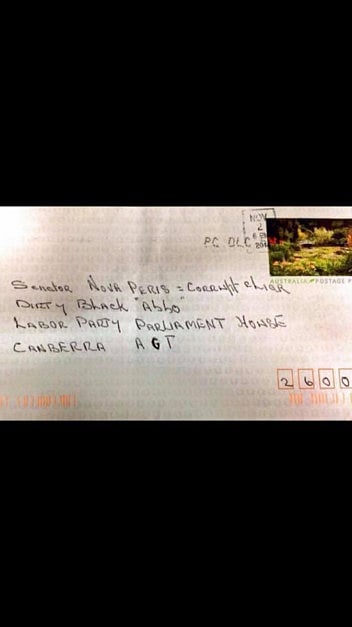 NOV
2
PC DLC
AUSTRALIA POSTAGE
Senator NOVA PERIS = CORRUPT & LIAR
DIRTY BLACK "Abbo"
LABOR PARTY PARLIAMENT HOUSE
CANBERRA ACT
2600